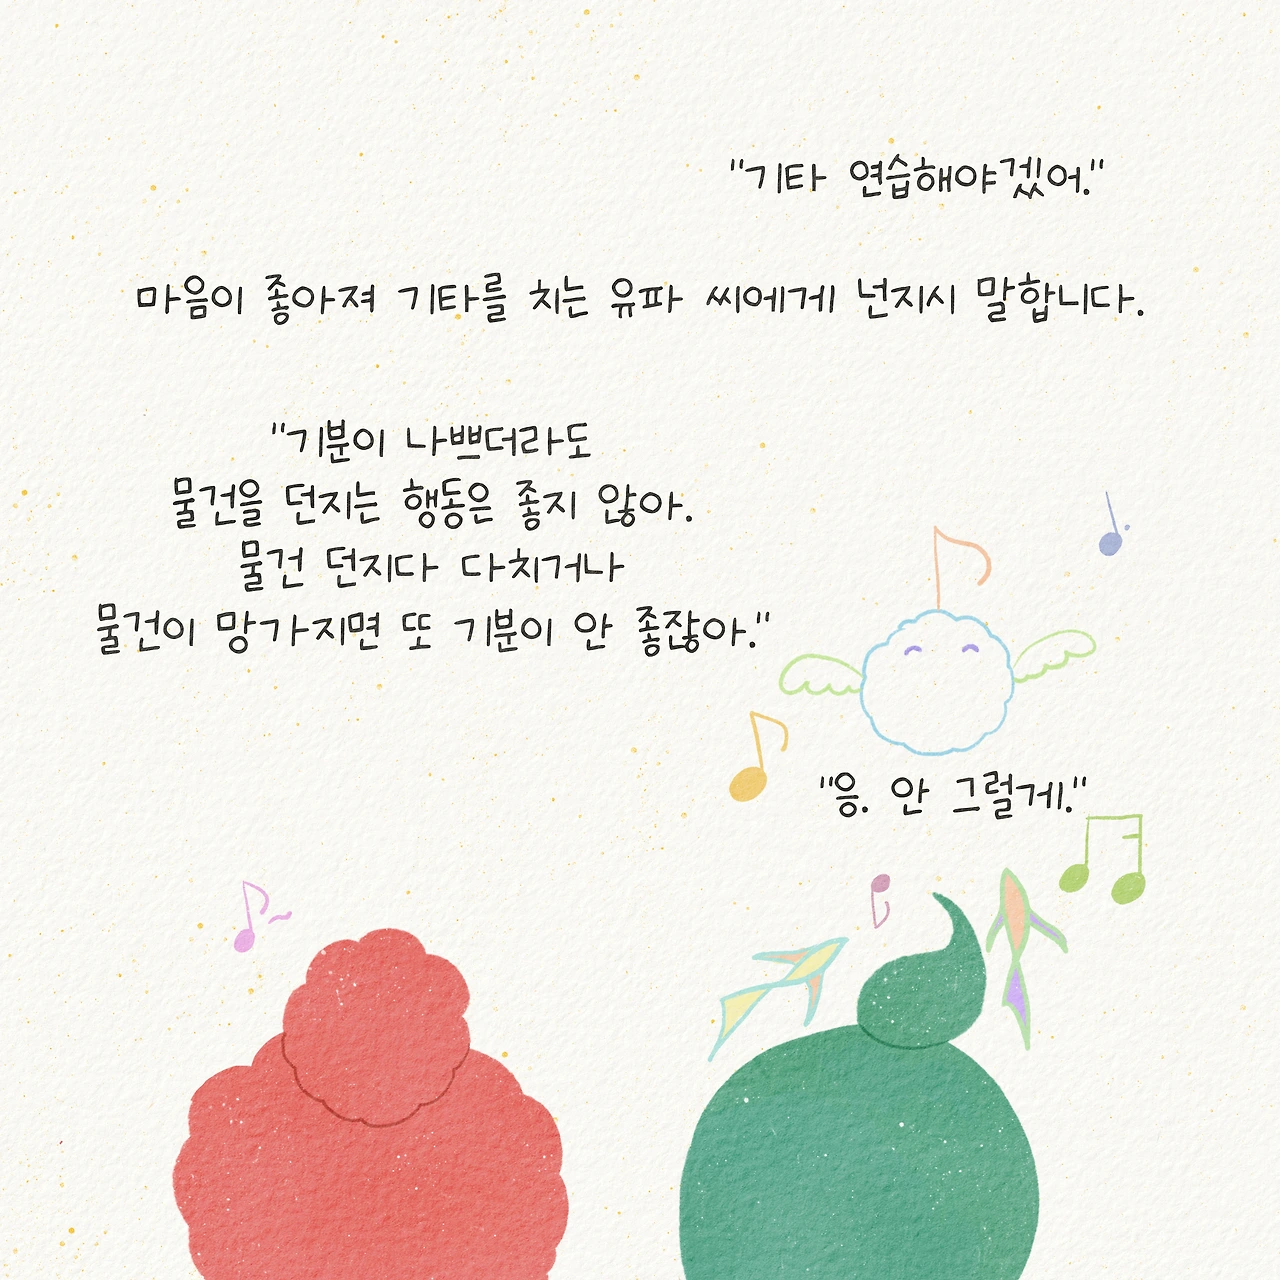 "기타 연습해야겠어."
마음이 좋아져 기타를 치는 유파 씨에게 넌지시 말합니다.
"기분이 나쁘더라도
물건을 던지는 행동은 좋지 않아.
물건 던지다 다치거나
물건이 망가지면 또 기분이 안 좋잖아."
"응. 안 그럴게."